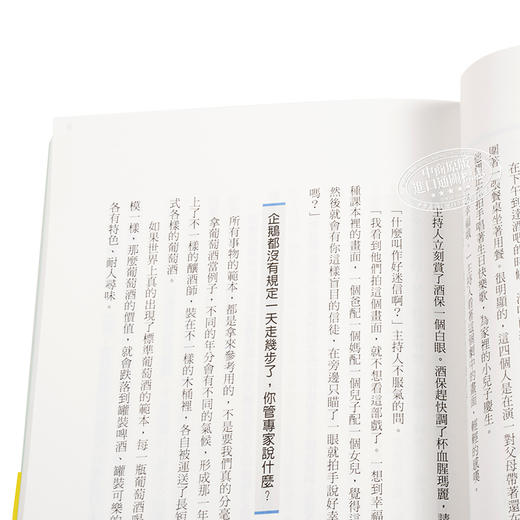 在下午到達酒吧的時候
圍著一張餐桌坐著用餐。很明顯的，這四個人是在演一對父母帶著還在
他們正在拍手唱著生日快樂歌，為家裡的小兒子慶生。
主持人立刻賞了酒保一個白眼。酒保趕快調了杯血腥瑪麗，請
「什麼叫作好迷信啊？」主持人不服氣的問。
「我看到他們拍這個畫面，就不想看這部戲了。一想到幸福
種課本裡的畫面，一個爸配一個媽配一個兒子配一個女兒，覺得這
然後就會有你這樣盲目的信徒，在旁邊只瞄了一眼就拍手說好幸
嗎？」
企鵝都沒有規定一天走幾步了，你管專家說什麼？
所有事物的範本，都是拿來參考用的，不是要我們真的分毫
拿葡萄酒當例子，不同的年分會有不同的氣候，形成那一年
上了不一樣的釀酒師，裝在不一樣的木桶裡，各自被運送了長短
式各樣的葡萄酒。
如果世界上真的出現了標準葡萄酒的範本，每一瓶葡萄酒喝
模一樣，那麼葡萄酒的價值，就會跌落到罐裝啤酒、罐裝可樂的
各有特色、耐人尋味。